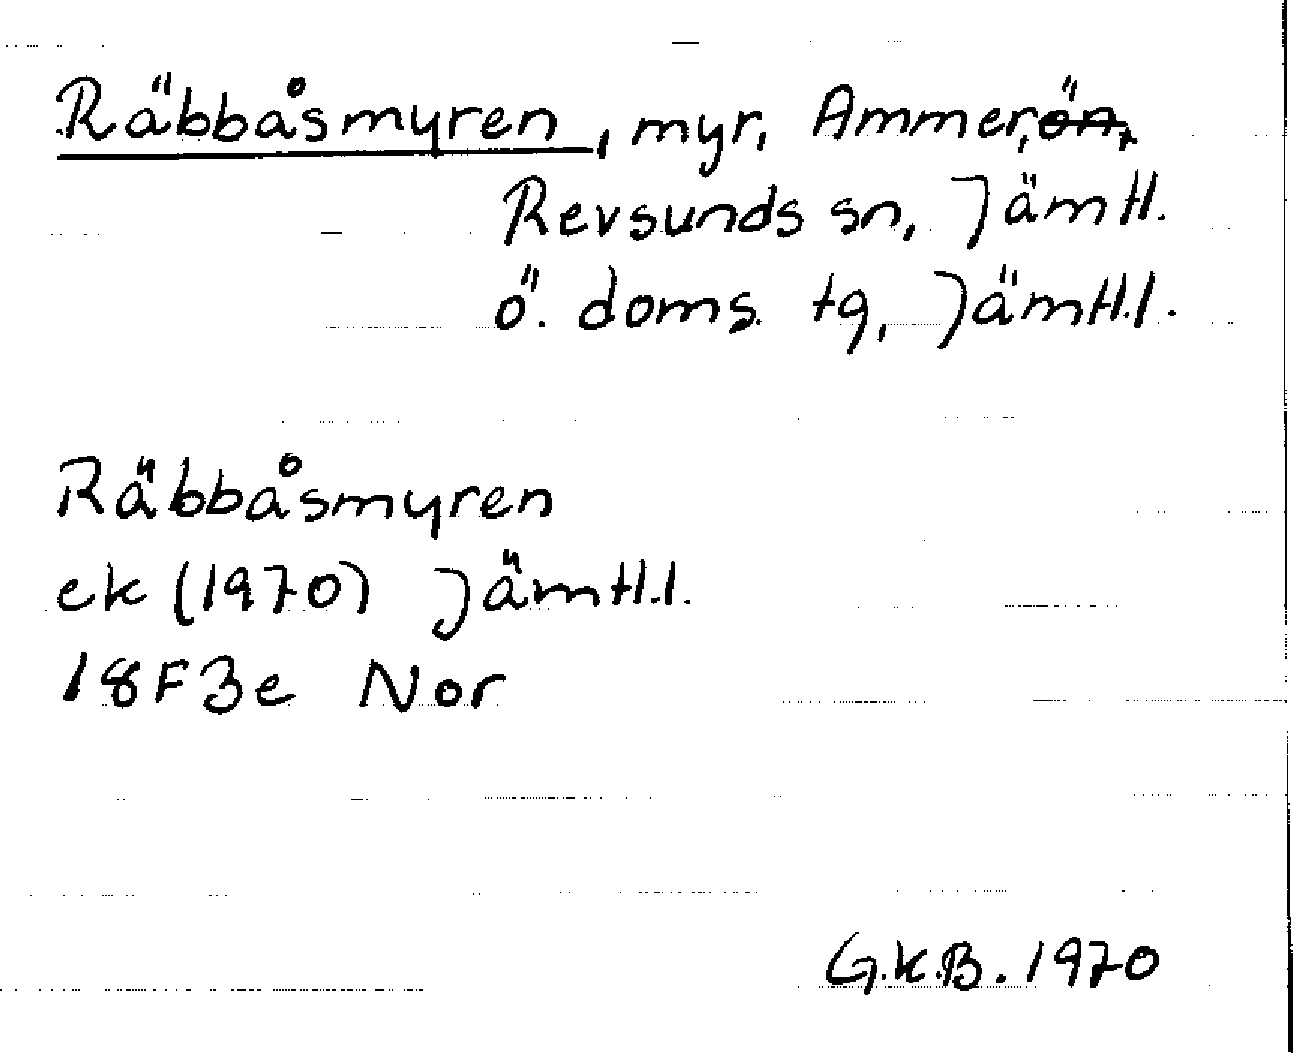 Räbbåsmyren, myr, Ammer, ön,
Revsunds sn, Jämtl.
ö. doms. tg, Jämtl.l.
Räbbåsmyren
ek (1970) Jämtl.l.
18F3e Nor
G.K.B. 1970